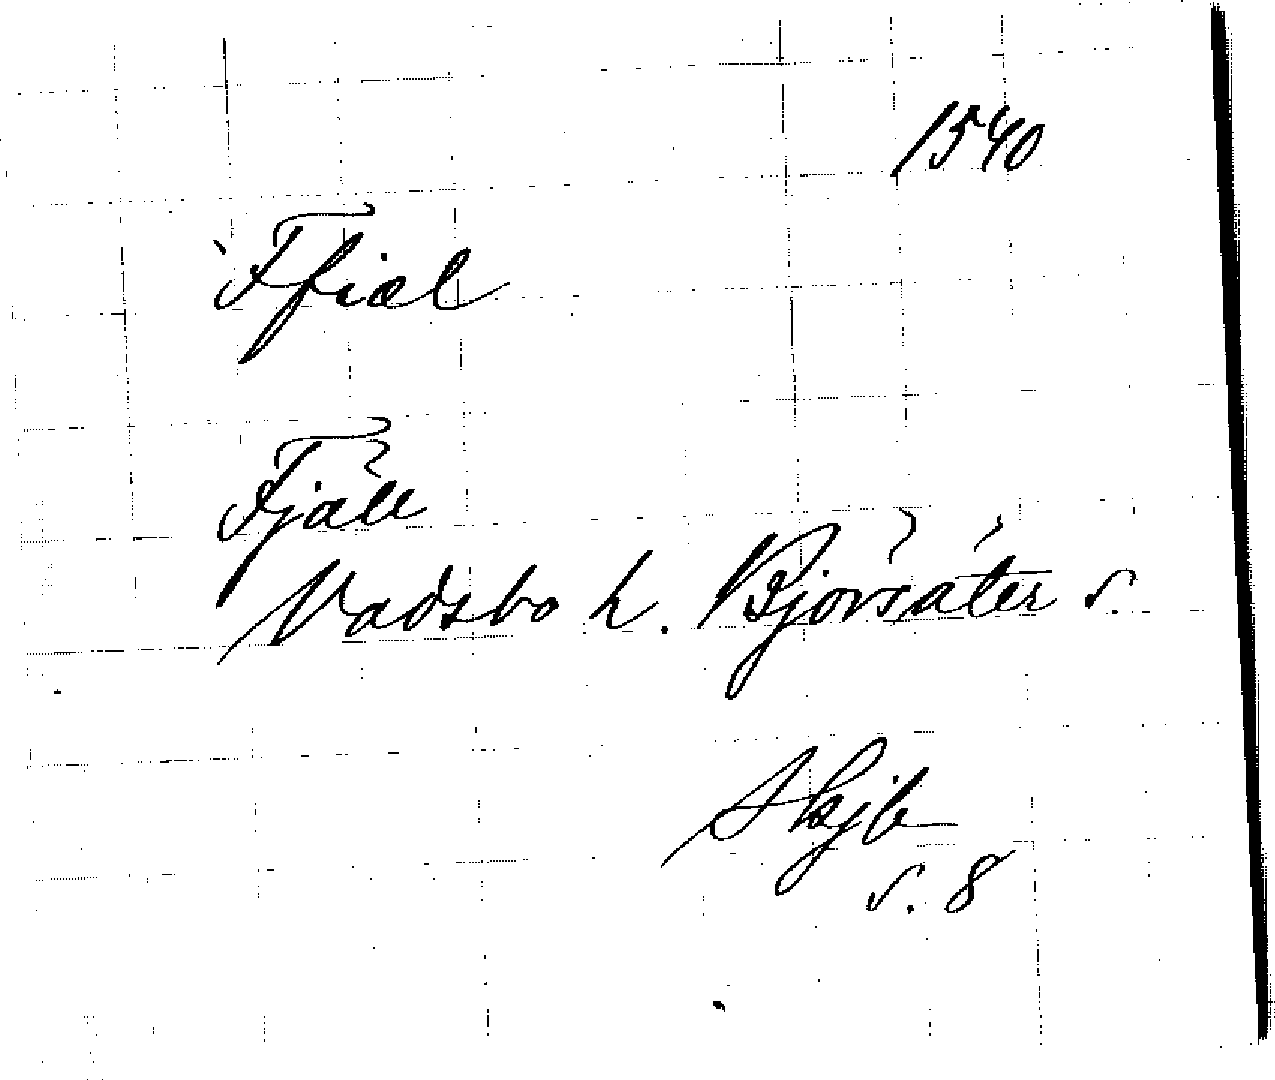 1540
Ffiæl
Fjäll
Vadsbo h. Björsäter s.
Skjb
s. 8